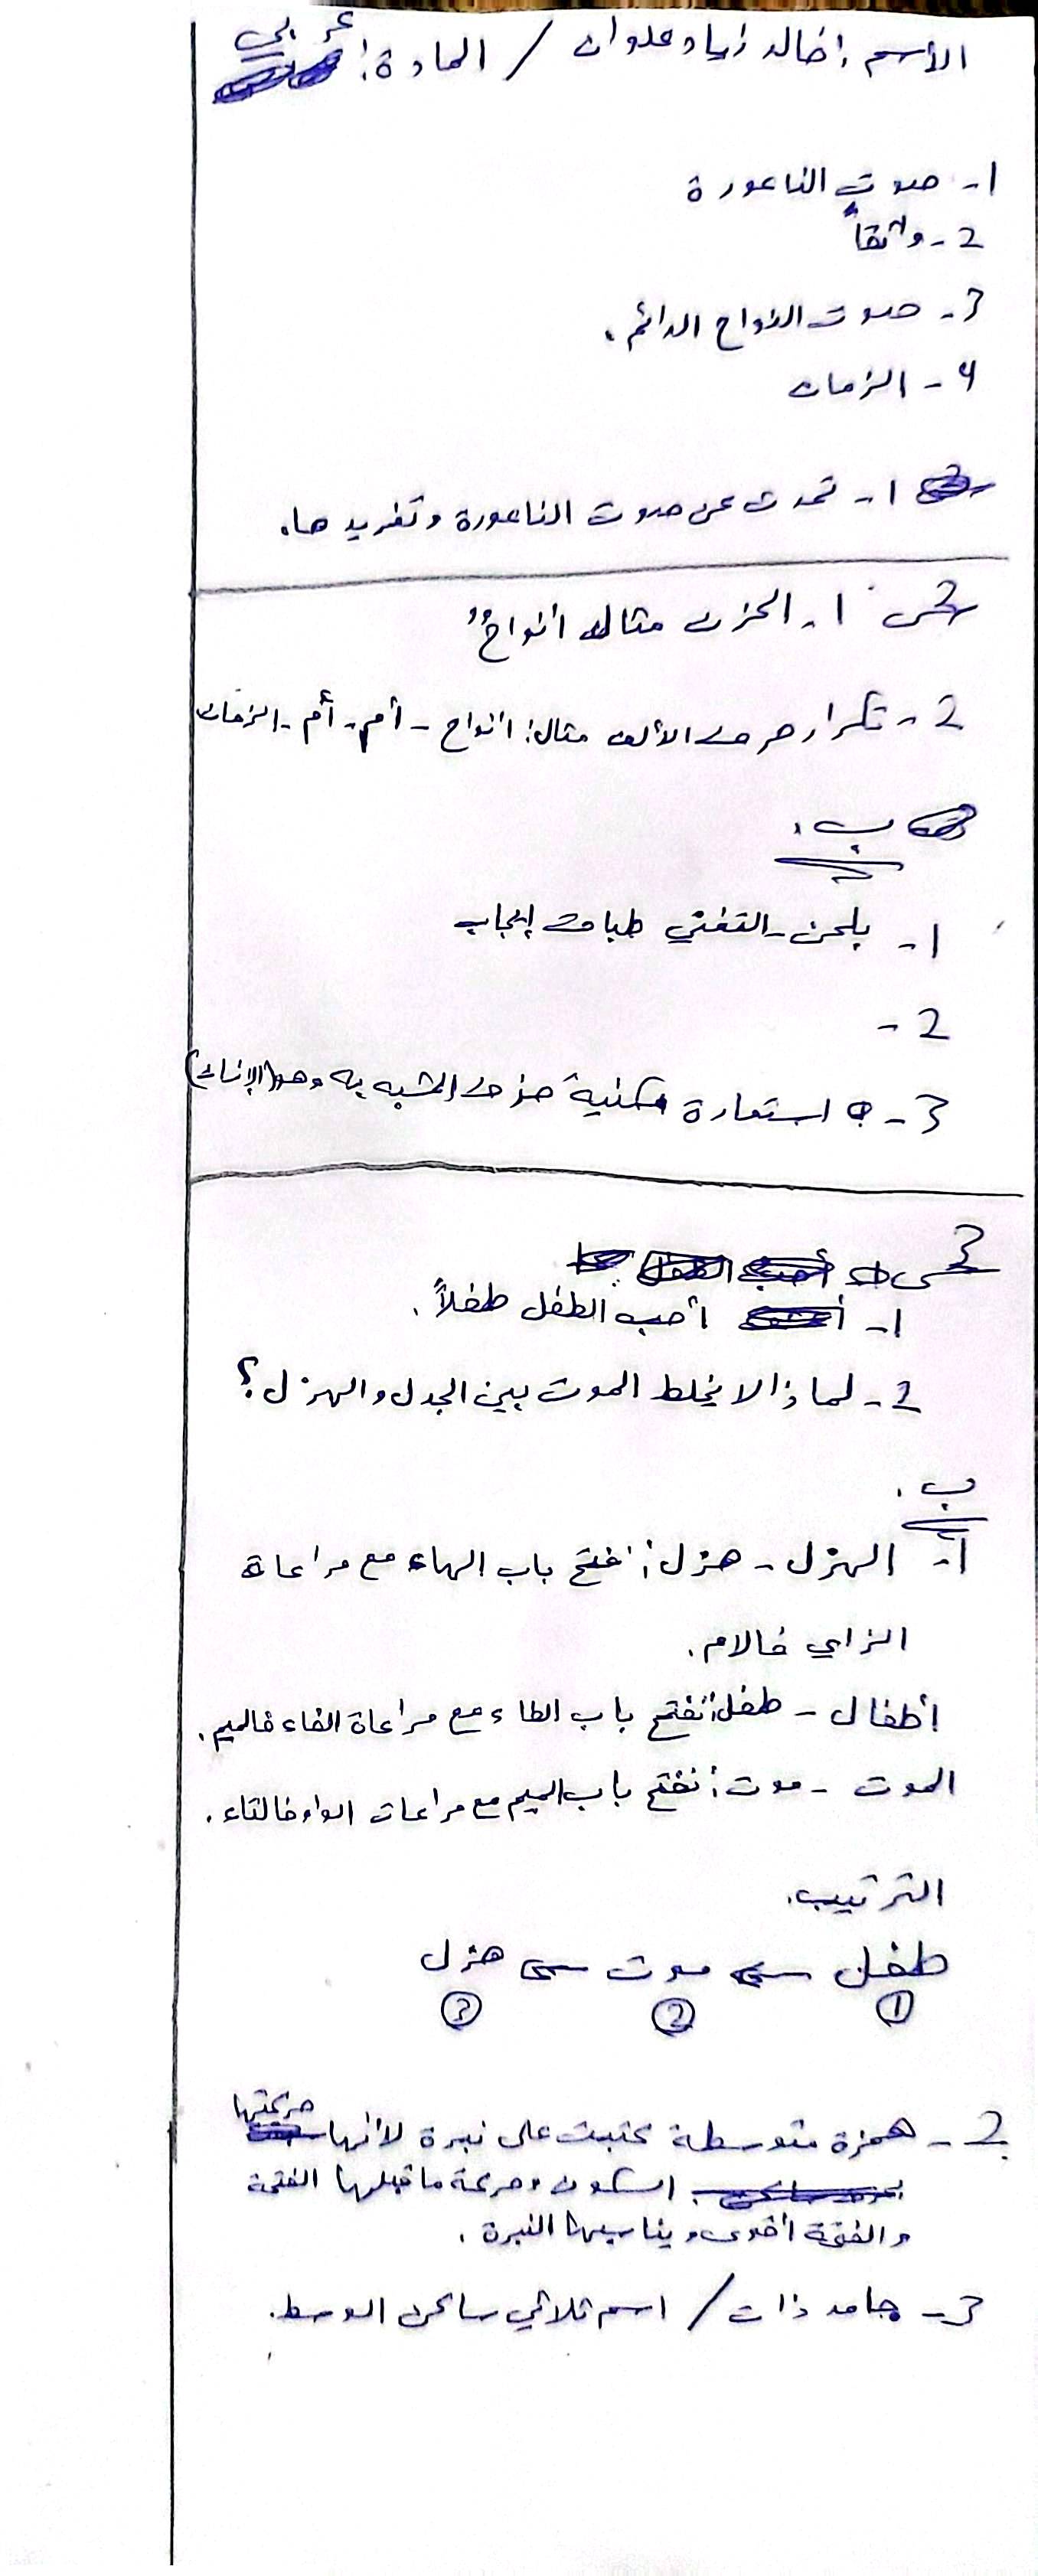 الأسم: خالد زياد علوان / المادة: عربي
1- صوت الناعورة
2- واثقاً
3- صوت النواح الدائم.
4- الزمان
1- تحدث عن صوت الناعورة وتغريدها.
س2 1- الحزن مثال: أنواحٌ
2- تكرار حرف الألف مثال: أنواح - أم - أم - الزمان
ب.
1- بلحن - التغني طباق إيجاب
2-
3- استعارة مكنية حذف المشبه به وهو (الإنسان)
س3
1- أحب الطفل طفلاً.
2- لماذا لا يخلط الموت بين الجدل والهزل؟
ب.
1- الهزل - هزل: نفتح باب الهاء مع مراعاة
الزاي فالام.
أطفال - طفل: نفتح باب الطاء مع مراعاة الفاء فالميم.
الموت - موت: نفتح باب الميم مع مراعات الواو فالتاء.
الترتيب.
طفل ← موت ← هزل
1 2 3
2- همزة متوسطة كتبت على نبرة لأنها حركتها
السكون وحركة ما قبلها الفتحة
والفتحة أقوى ويناسبها النبرة.
3- جامد ذات / اسم ثلاثي ساكن الوسط.